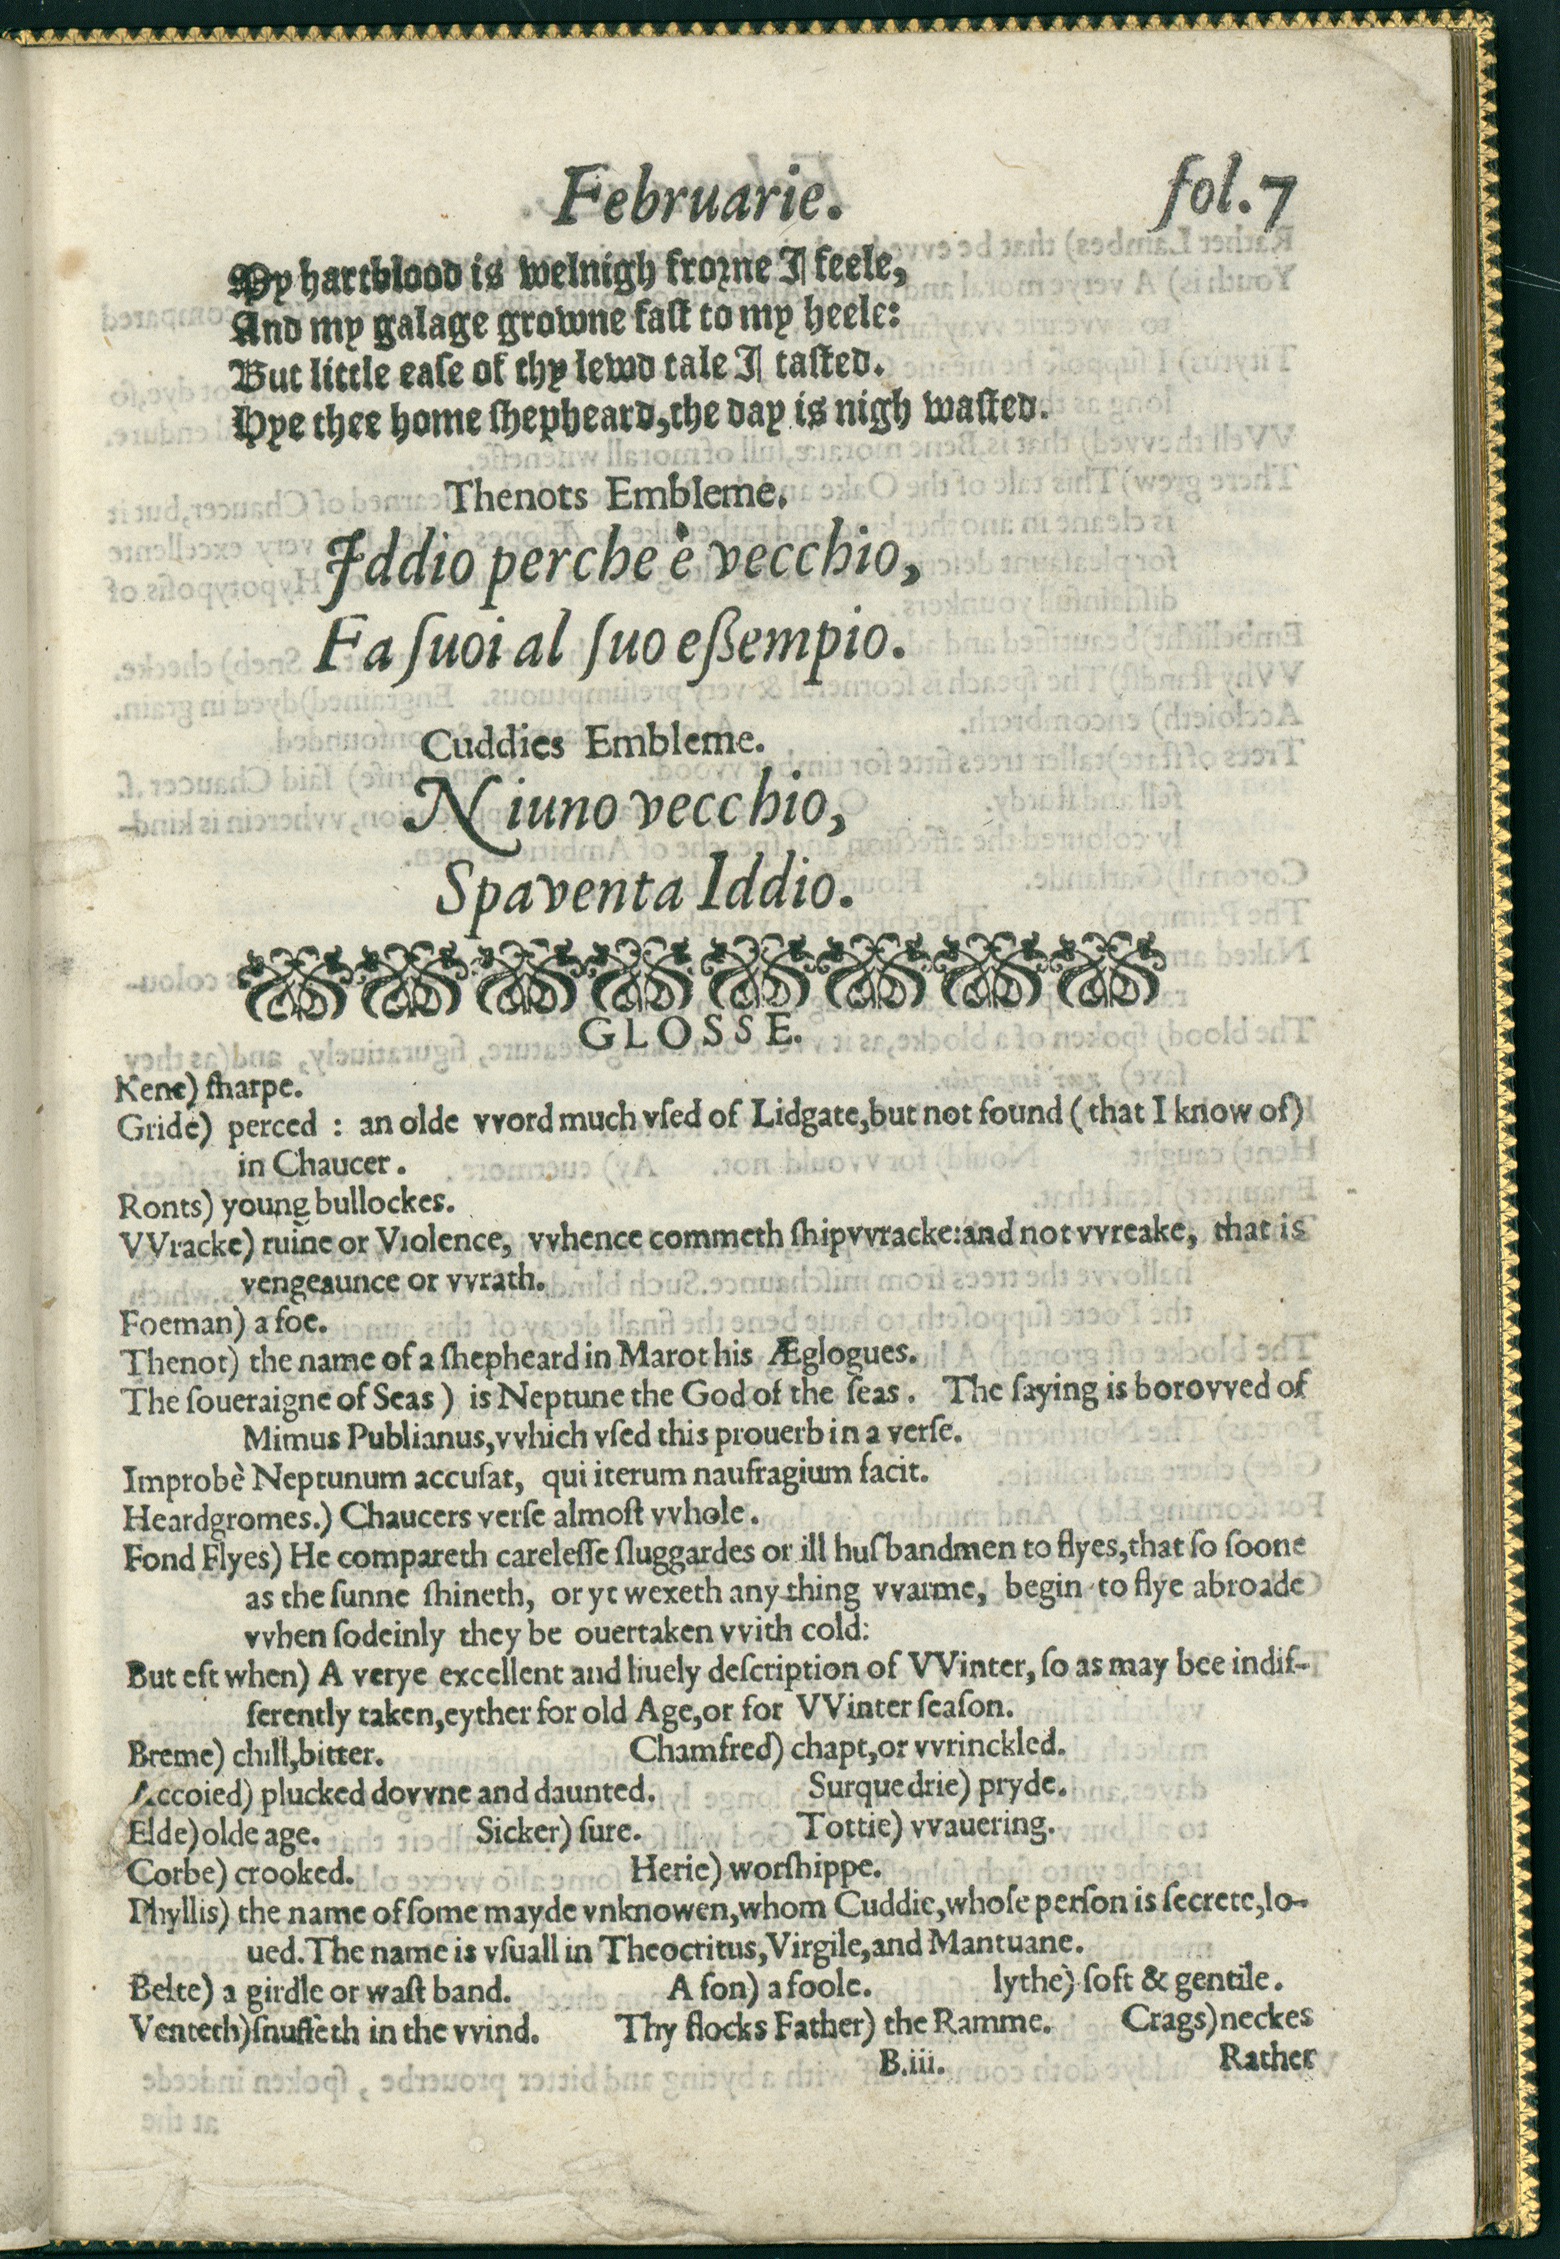 Februarie. fol.7
My hartblood is welnigh frorne I feele,
And my galage growne fast to my heele:
But little ease of thy lewd tale I tasted.
Hye thee home shepheard,the day is nigh wasted.
Thenots Embleme.
Iddio perche è vecchio,
Fa suoi al suo eßempio.
Cuddies Embleme.
Niuno vecchio,
Spaventa Iddio.
GLOSSE.
Kene) ſharpe.
Gride) perced : an olde vvord much vſed of Lidgate,but not found (that I know of)
in Chaucer.
Ronts) young bullockes.
VVracke) ruine or Violence, vvhence commeth ſhipvvracke:and not vvreake, that is
vengeaunce or vvrath.
Foeman) a foe.
Thenot) the name of a ſhepheard in Marot his Æglogues.
The ſoueraigne of Seas) is Neptune the God of the ſeas. The ſaying is borovved of
Mimus Publianus,vvhich vſed this prouerb in a verſe.
Improbè Neptunum accuſat, qui iterum naufragium facit.
Heardgromes.) Chaucers verſe almoſt vvhole.
Fond Flyes) He compareth careleſſe ſluggardes or ill huſbandmen to flyes,that ſo ſoone
as the ſunne ſhineth, or yt wexeth any thing vvarme, begin to flye abroade
vvhen ſodeinly they be ouertaken vvith cold:
But eft when) A verye excellent and liuely deſcription of VVinter, ſo as may bee indif-
ferently taken,eyther for old Age,or for VVinter ſeaſon.
Breme) chill,bitter. Chamfred) chapt,or vvrinckled.
Accoied) plucked dovvne and daunted. Surquedrie) pryde.
Elde)olde age. Sicker) ſure. Tottie) vvauering.
Corbe) crooked. Herie) worſhippe.
Phyllis) the name of ſome mayde vnknowen,whom Cuddie,whoſe perſon is ſecrete,lo-
ued.The name is vſuall in Theocritus,Virgile,and Mantuane.
Belte) a girdle or waſt band. A fon) a foole. lythe) ſoft & gentile.
Venteth)ſnuffeth in the vvind. Thy flocks Father) the Ramme. Crags)neckes
B.iii. Rather